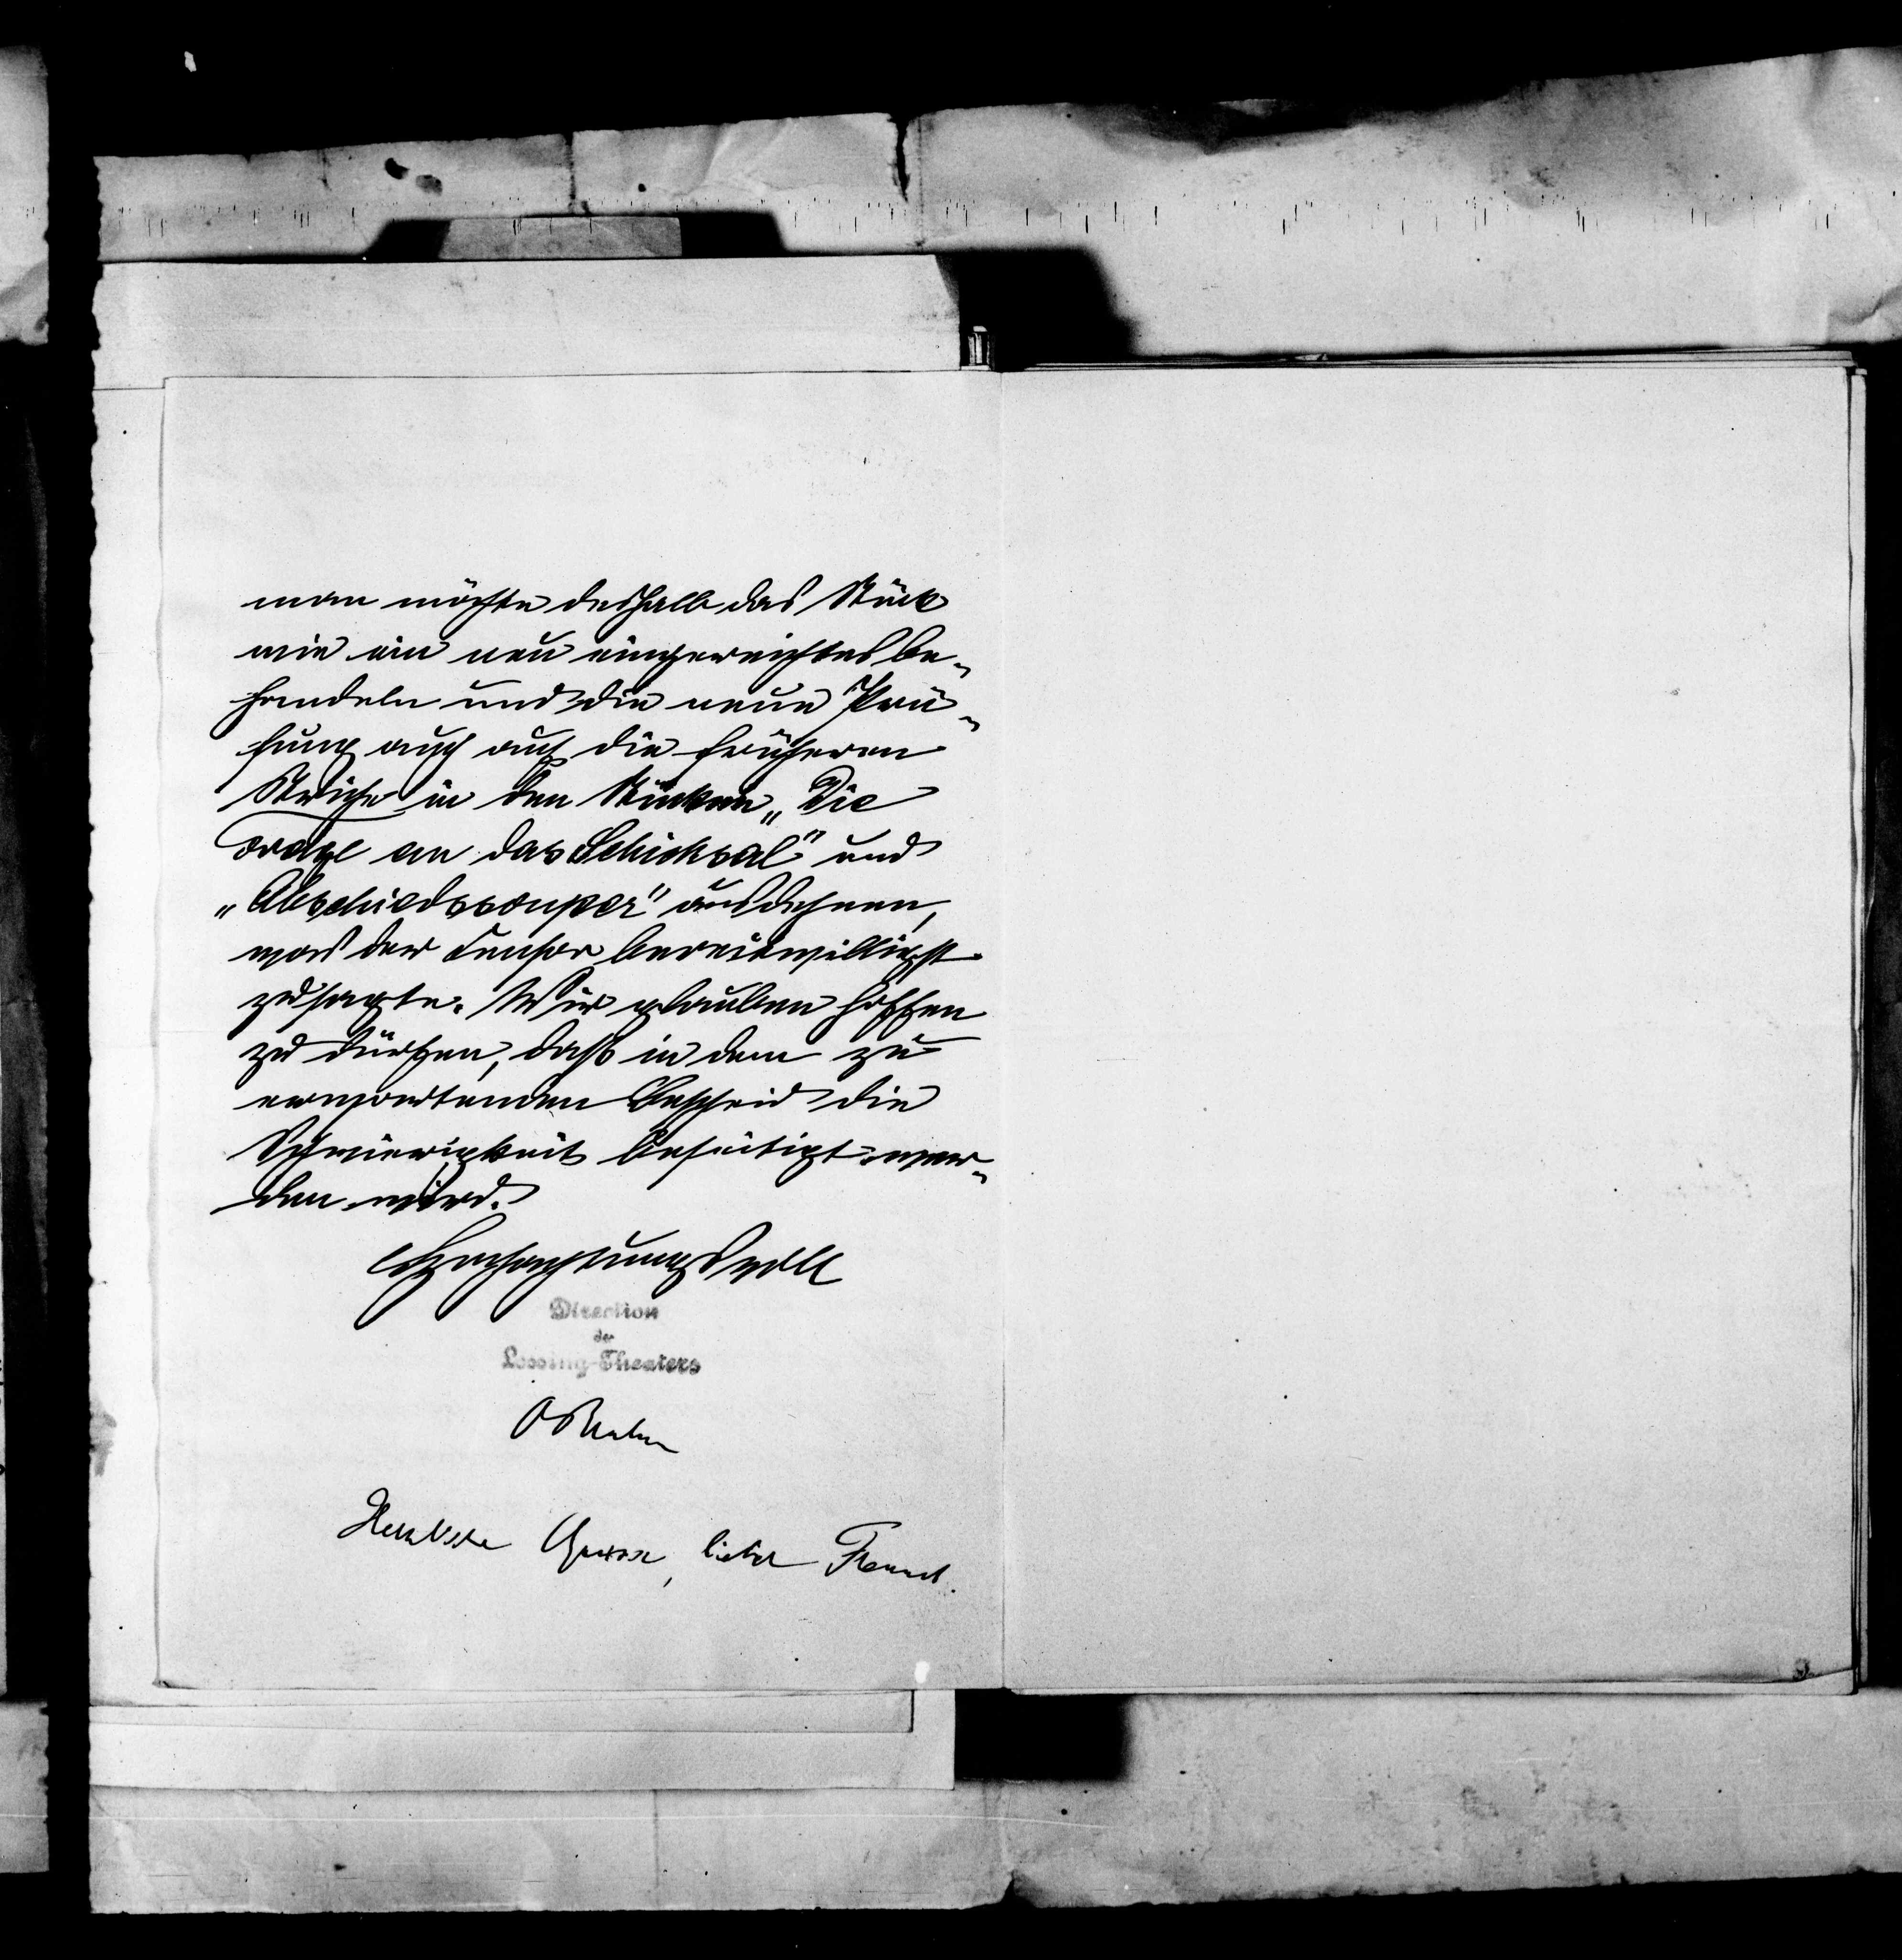 man möchte deshalb das Stück
wie ein neu eingereichtes be-
handeln und die neue Prü-
fung auch auf die früheren
Striche in den Stücken „Die
Frage an das Schicksal“ und
„Abschiedssouper“ ausdehnen,
was der Censor bereitwilligst
zusagte. Wir glauben hoffen
zu dürfen, daß in dem zu
erwartenden Bescheid die
Schwierigkeit beseitigt wer-
den wird.
Hochachtungsvoll
Direction
des
Lessing-Theaters
OBrahm
Herzlichste Grüsse, lieber Freund.